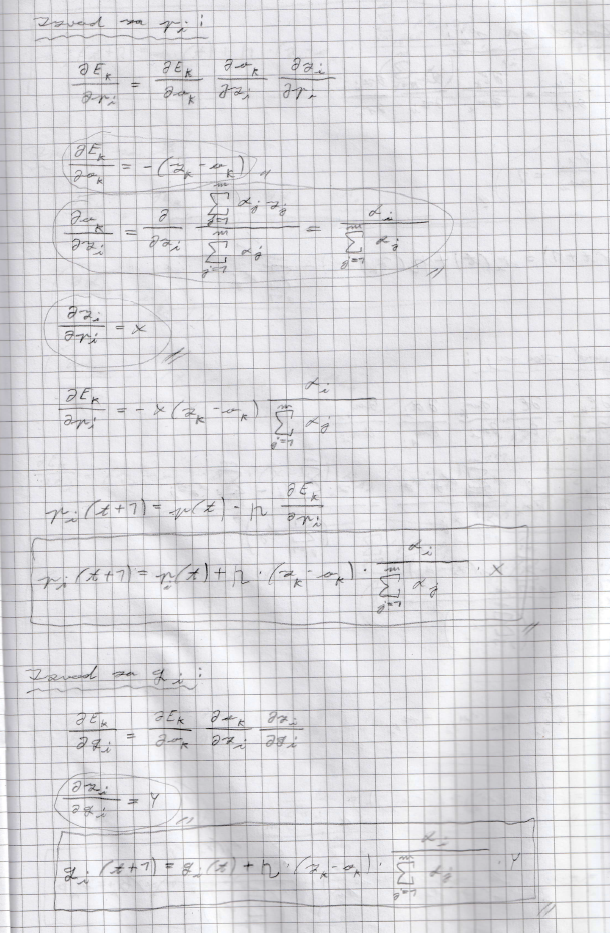 Izvod za p_i:
∂E_k/∂p_i = ∂E_k/∂o_k ∂o_k/∂z_i ∂z_i/∂p_i
∂E_k/∂o_k = -(z_k - o_k)
∂o_k/∂z_i = ∂/∂z_i ∑_{j=1}^{m} α_j z_j / ∑_{j=1}^{m} α_j = α_i / ∑_{j=1}^{m} α_j
∂z_i/∂p_i = X
∂E_k/∂p_i = -X(z_k - o_k) α_i / ∑_{j=1}^{m} α_j
p_i(t+1) = p(t) - η ∂E_k/∂p_i
p_i(t+1) = p_i(t) + η · (z_k - o_k) · α_i / ∑_{j=1}^{m} α_j · X
Izvod za q_i:
∂E_k/∂q_i = ∂E_k/∂o_k ∂o_k/∂z_i ∂z_i/∂q_i
∂z_i/∂q_i = Y
q_i(t+1) = q_i(t) + η · (z_k - o_k) · α_i / ∑_{j=1}^{m} α_j · Y